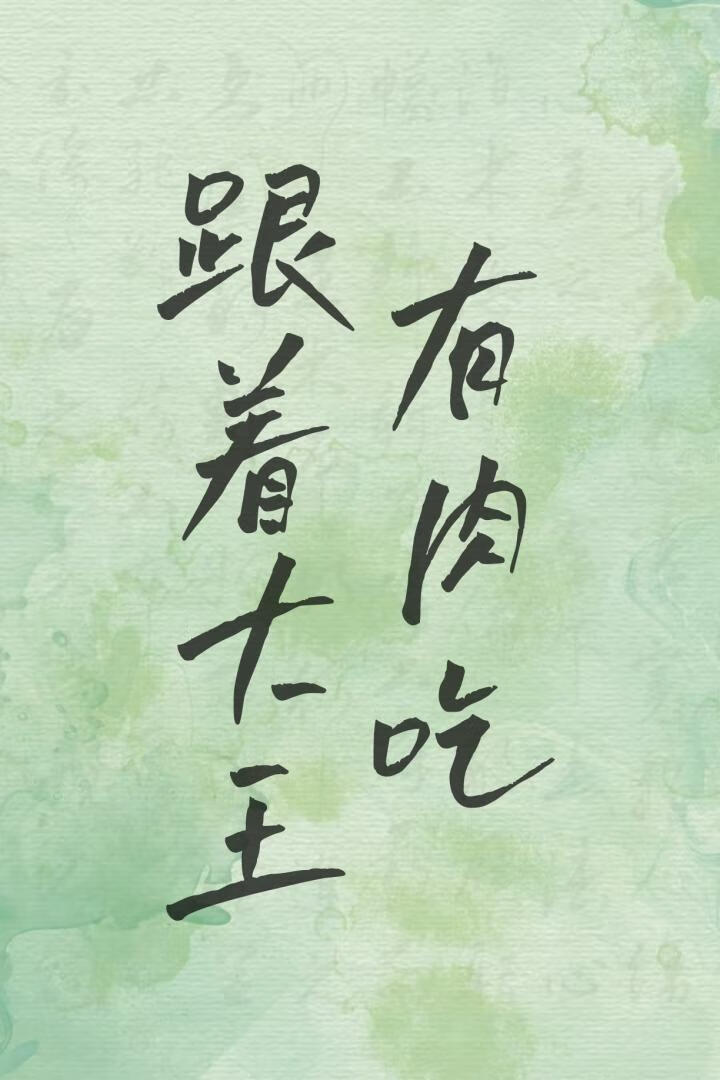 跟着大王
有肉吃